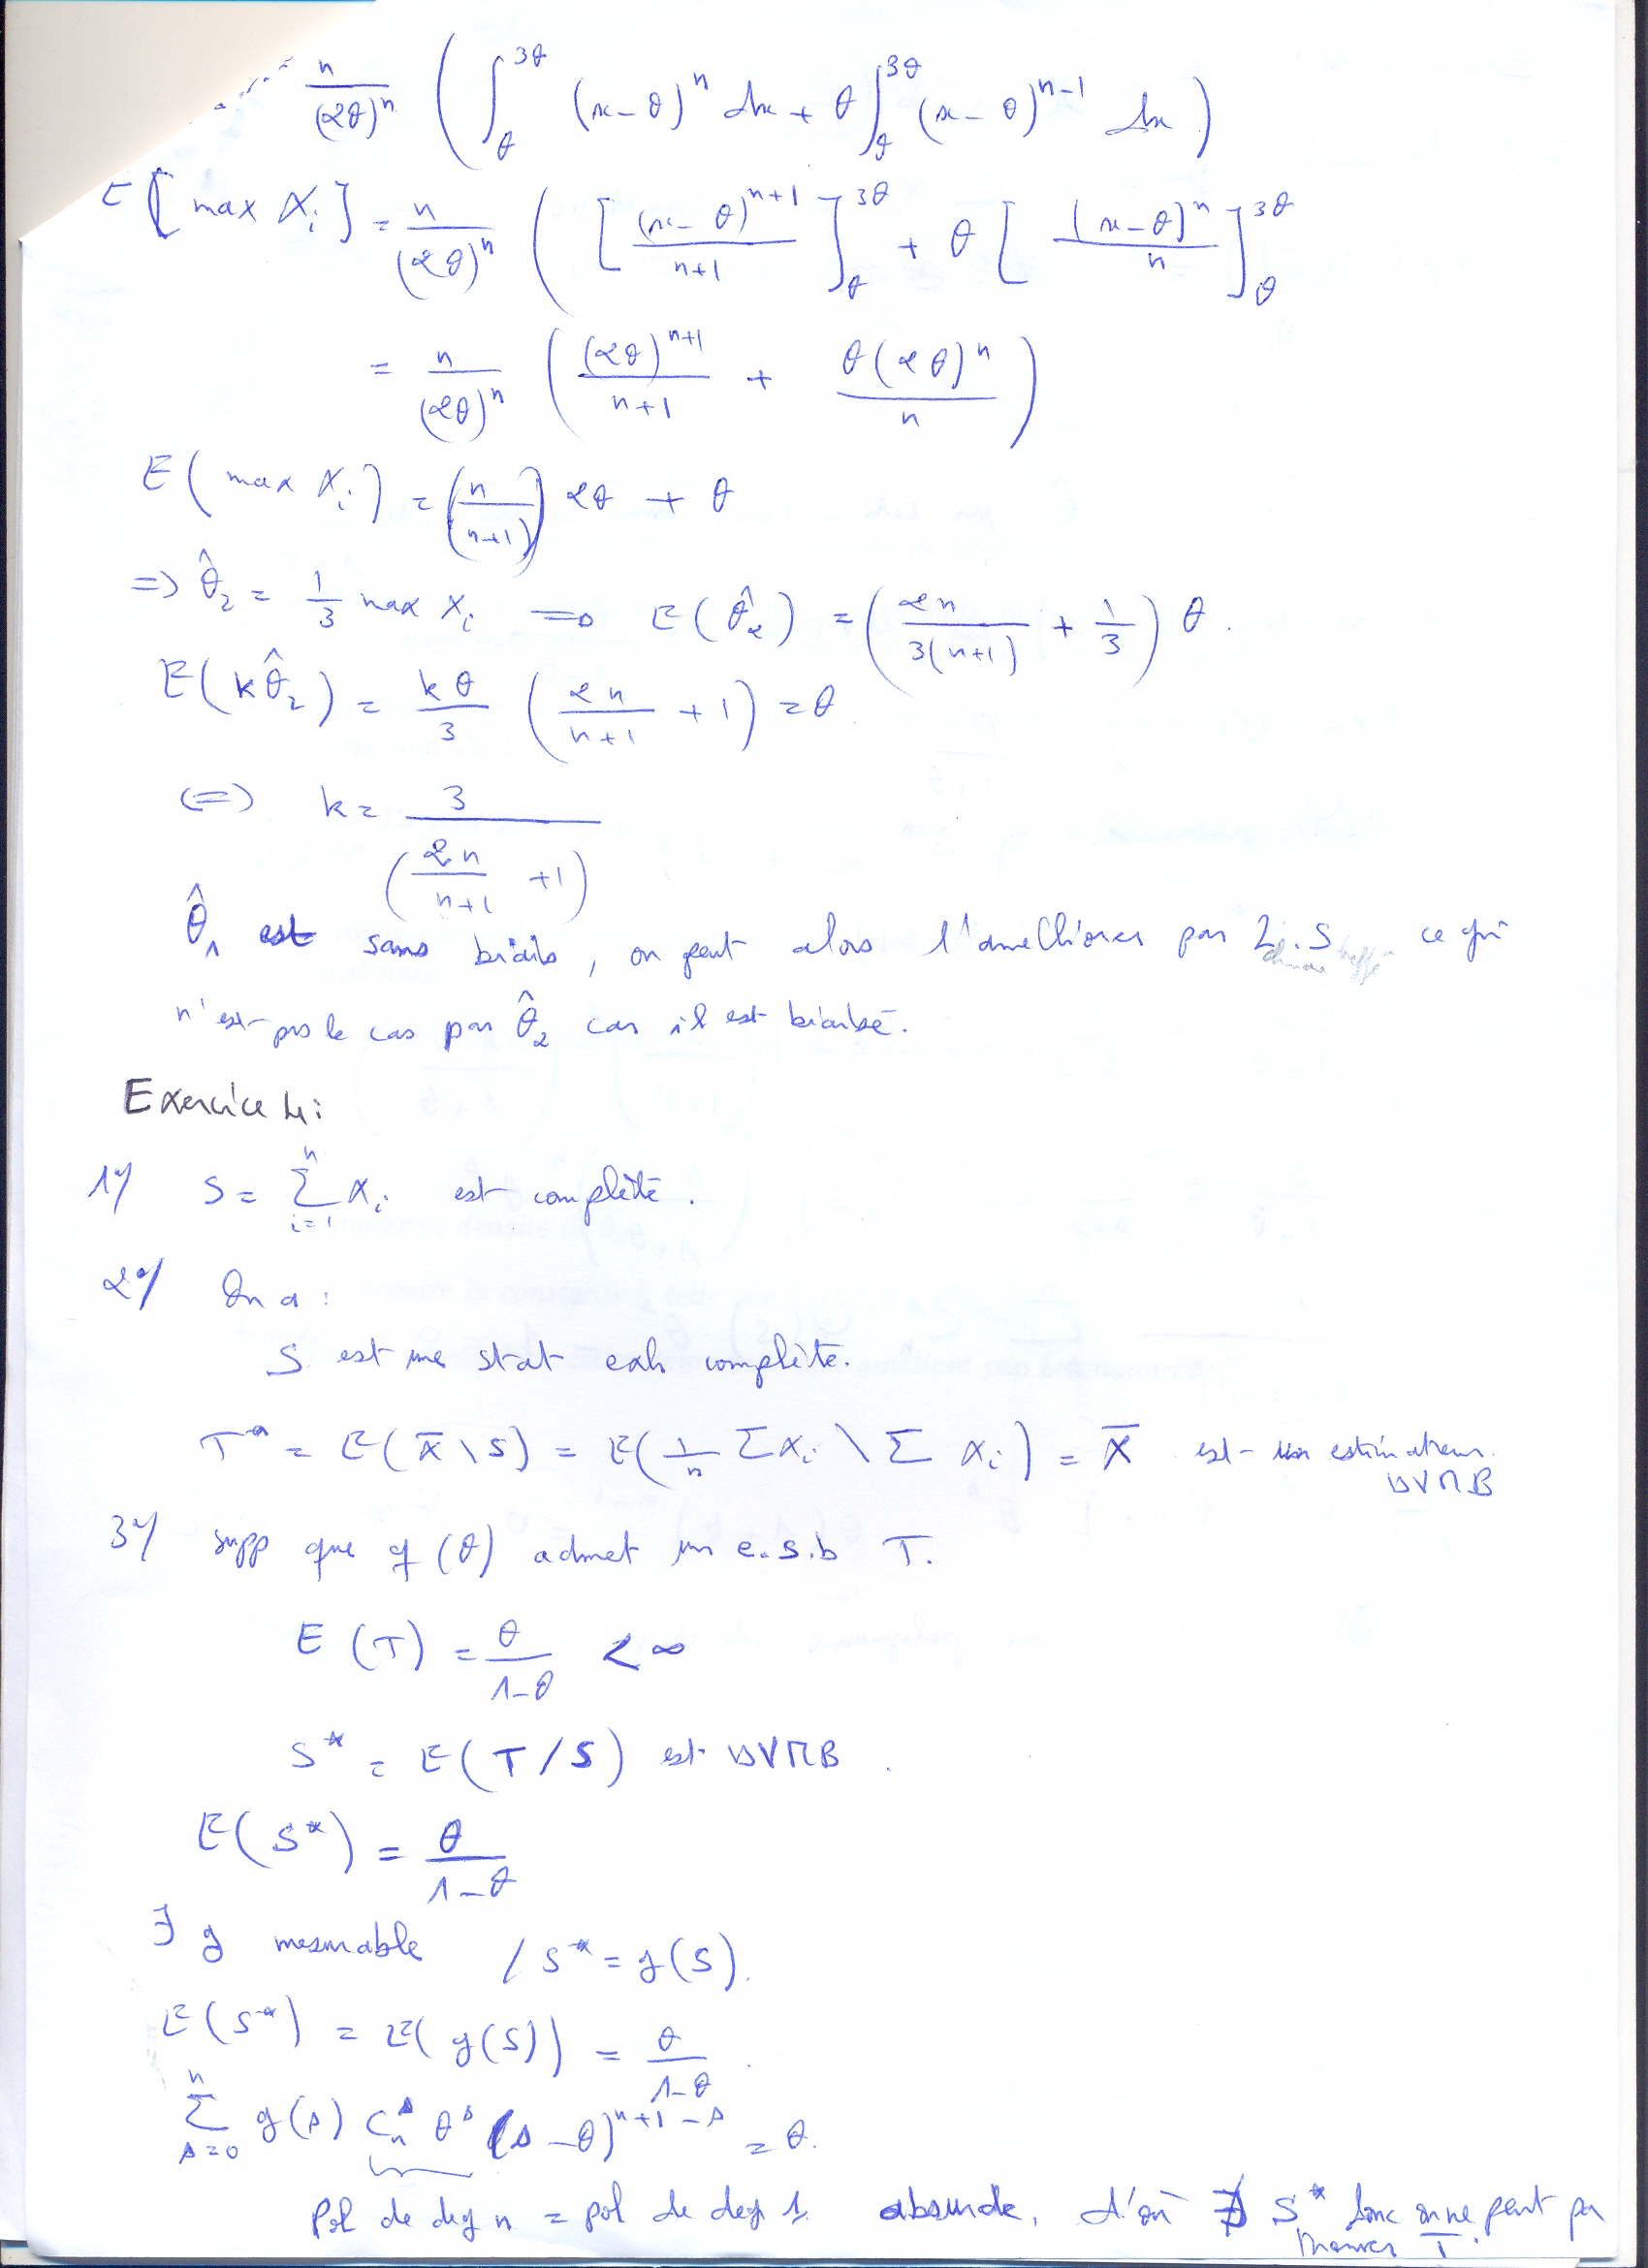 n/(2θ)^n ( ∫_θ^{3θ} (x-θ)^n dx + θ ∫_θ^{3θ} (x-θ)^{n-1} dx )
E[max X_i] = n/(2θ)^n ( [ (x-θ)^{n+1}/(n+1) ]_θ^{3θ} + θ [ (x-θ)^n/n ]_θ^{3θ}
= n/(2θ)^n ( (2θ)^{n+1}/(n+1) + θ(2θ)^n/n )
E(max X_i) = (n/(n+1)) 2θ + θ
=> θ̂_2 = 1/3 max X_i => E(θ̂_2) = ( 2n/(3(n+1)) + 1/3 ) θ.
E(kθ̂_2) = kθ/3 ( 2n/(n+1) + 1 ) = θ
(=) k = 3/( 2n/(n+1) + 1 )
θ̂_1 est sans biais, on peut alors l'améliorer par L.S ce qui
n'est pas le cas pour θ̂_2 car il est biaisé.
Exercice 4:
1°/ S = Σ_{i=1}^n X_i est complète.
2°/ On a :
S est une stat exh complète.
T* = E(X̄ \ S) = E(1/n Σ X_i \ Σ X_i) = X̄ est un estimateur
SVMB
3°/ supp que g(θ) admet un e.s.b T.
E(T) = θ/(1-θ) < ∞
S* = E(T/S) est SVMB.
E(S*) = θ/(1-θ)
∃ g mesurable / S* = g(S).
E(S*) = E(g(S)) = θ/(1-θ).
Σ_{s=0}^n g(s) C_n^s θ^s (1-θ)^{n+1-s} = θ.
Pol de deg n = pol de deg 1. absurde, d'où ∄ S* donc on ne peut pas
trouver T.